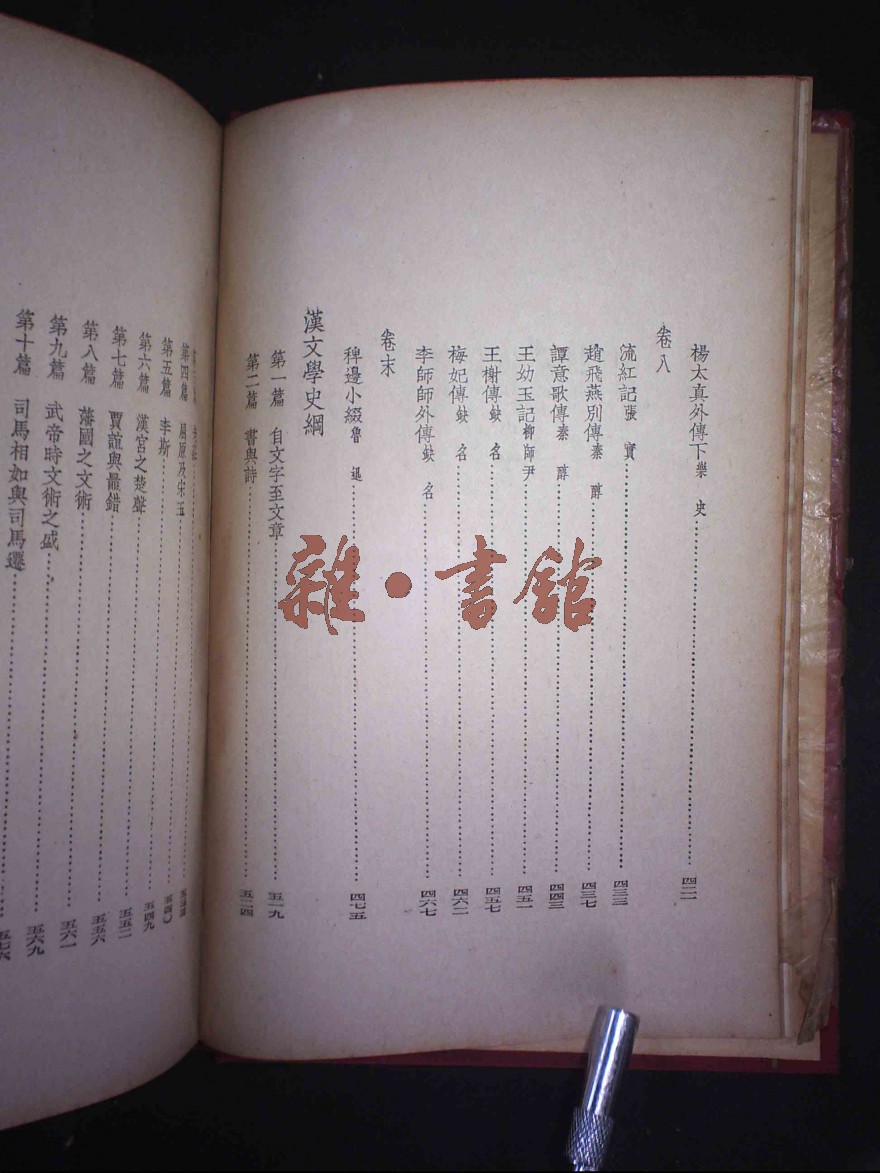 楊太真外傳下樂 史……四二一
卷八
流紅記張 實……四三三
趙飛燕別傳秦 醇……四三七
譚意歌傳秦 醇……四四三
王幼玉記柳師尹……四五一
王榭傳缺 名……四五七
梅妃傳缺 名……四六二
李師師外傳缺 名……四六七
卷末
稗邊小綴魯 迅……四七五
漢文學史綱
第一篇 自文字至文章……五一九
第二篇 書與詩……五二四
第四篇 屈原及宋玉……五四〇
第五篇 李斯……五四九
第六篇 漢宮之楚聲……五五二
第七篇 賈誼與鼂錯……五五六
第八篇 藩國之文術……五六一
第九篇 武帝時文術之盛……五六九
第十篇 司馬相如與司馬遷……五七六
雜·書館